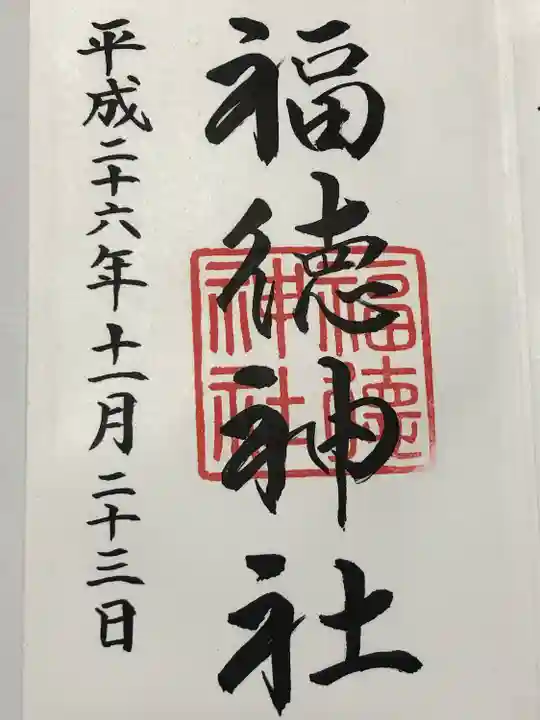 福徳神社
福徳
神社
平成二十六年十一月二十三日